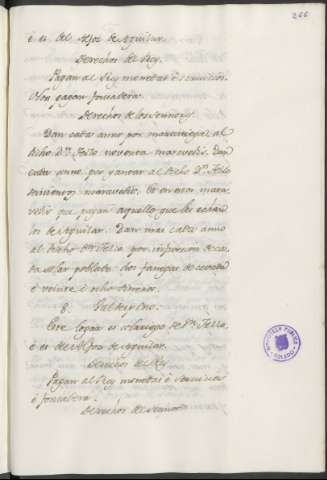 266
é es del Alfoz de Aguilar.
Derechos del Rey.
Pagan al Rey monedas é servicios.
Non pagan fonsadera.
Derechos de los Señores.
Dan cada anno por martiniega al
dicho Dn. Tello noventa maravedis. Dan
cada anno por yantar al dicho Dn. Tello
maravedis. é en esto mara-
vedis que pagan aquello que les echan
los de Aguilar. Dan mas cada anno
al dicho Dn. Tello por infurcion de ca-
da solar poblado dos fanegas de cevada
é veinte é ocho dineros.
8.
Este logar es abadengo de Sta.
é es del Alfoz de Aguilar.
Derechos del Rey
Pagan al Rey monedas é servicios
é fonsadera.
Derechos de Señor
BIBLIOTECA PUBLICA
TOLEDO